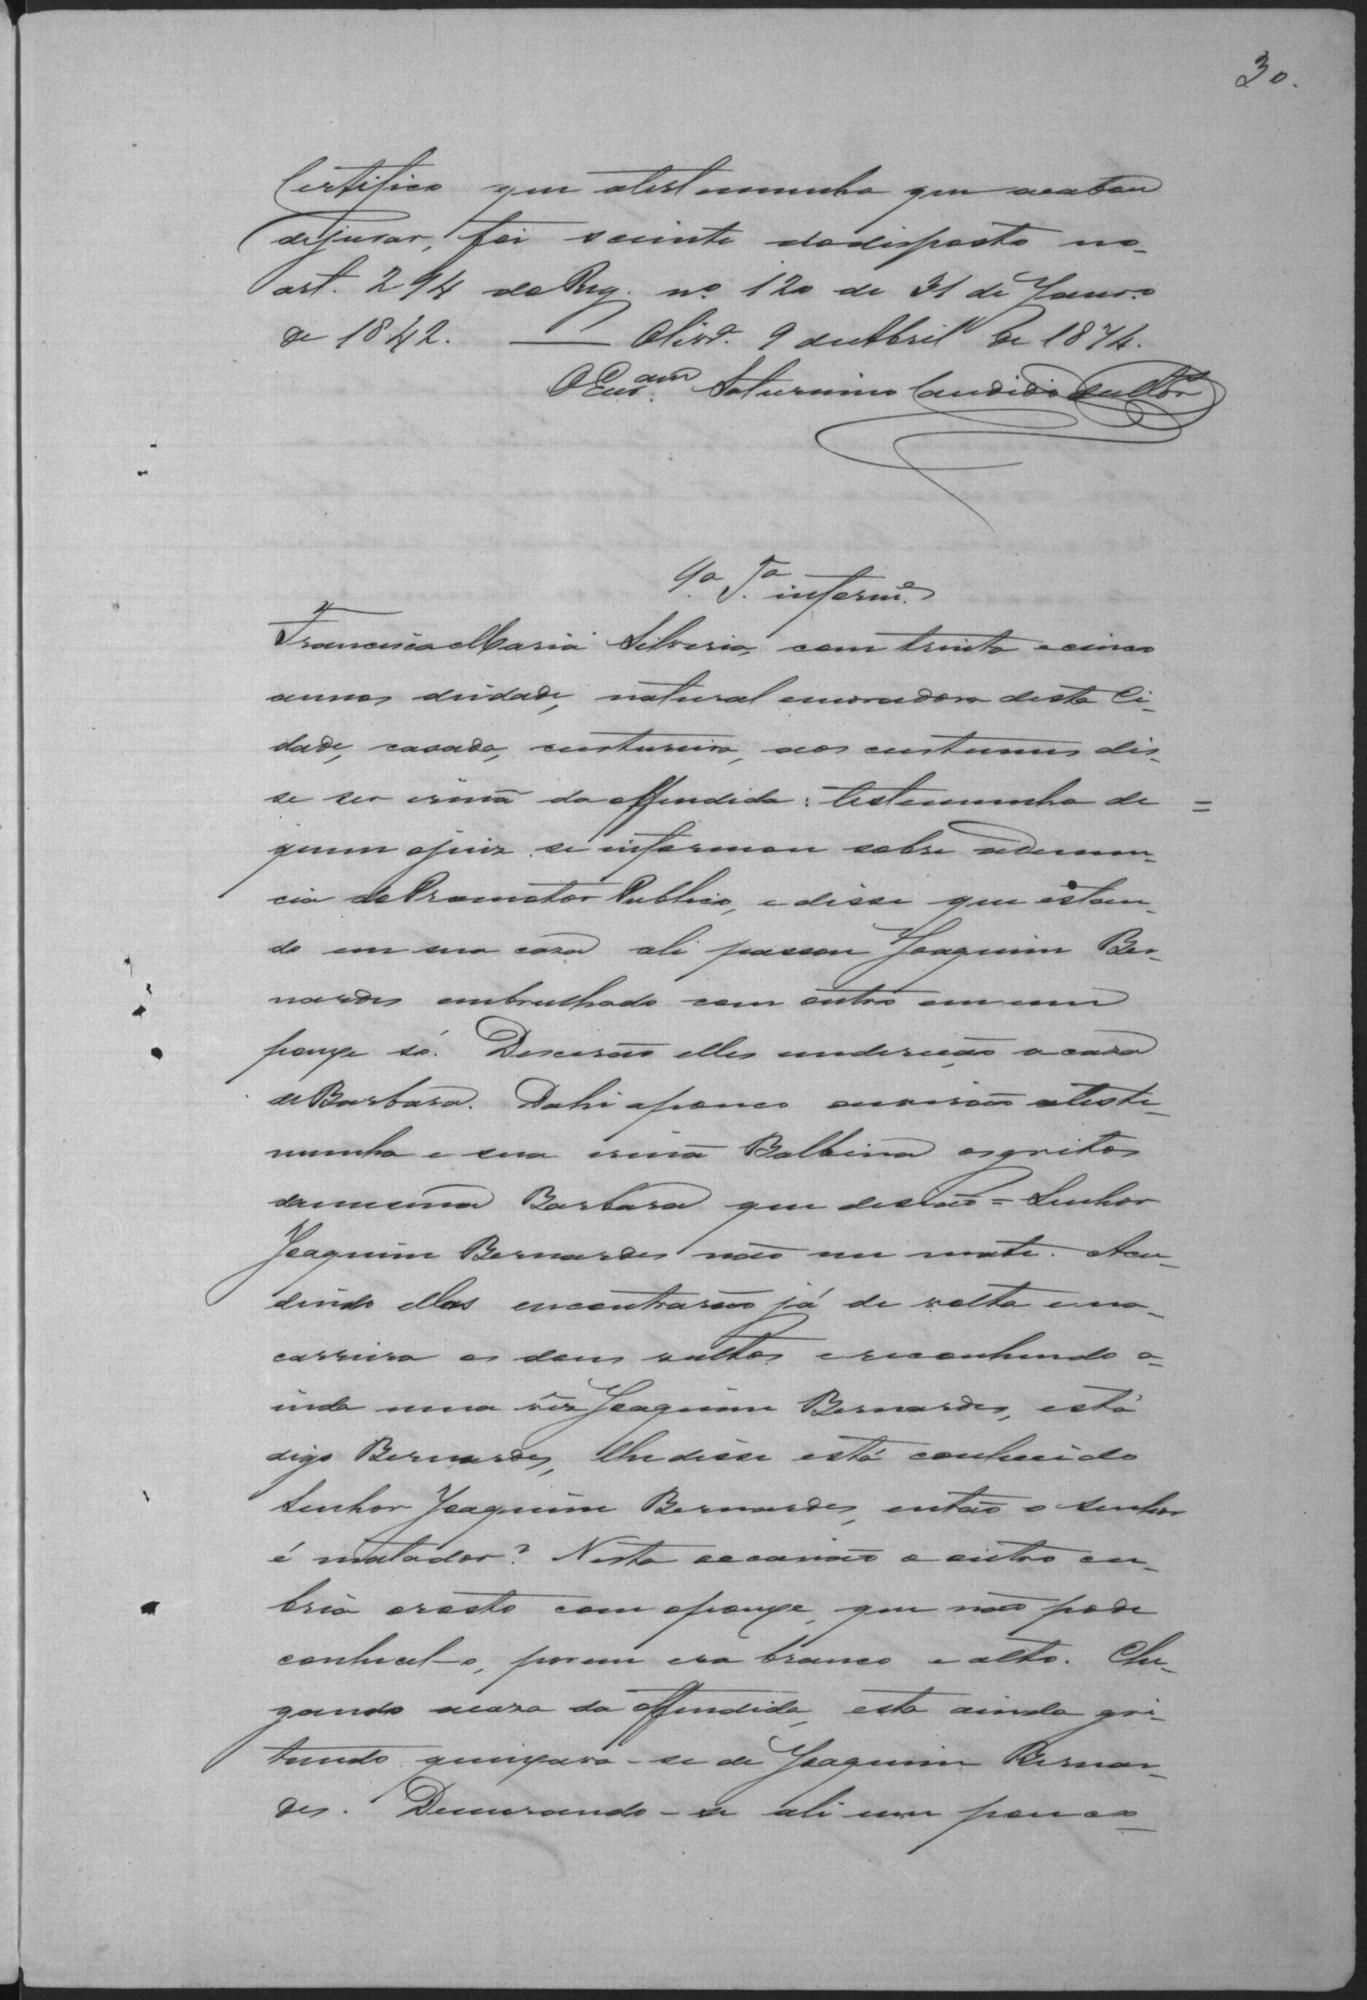 30.
Certifico que atestemunha que acabou
dejurar, foi sciente dodisposto no
art. 294 do Reg. nº 120 de 31 de Janrº
de 1842. — Olivrª 9 deAbril de 1874.
O Escram Saturnino Candido
9ª Tª inform.
FranciscaMaria Silveria, com trinta ecinco
annos deidade, natural emoradora desta Ci-
dade, casada, custureira, aos custumes dis-
se ser irmã da offendida: testemunha de =
quem ojuiz se informou sobre adenun-
cia doPromotor Publico, edisse que estan-
do em sua casa ali passou Joaquim Ber-
nardes embrulhado com outro em um
ponxe só. Descerão elles em direcção a casa
deBarbara. Dahi apouco ouvirão ateste-
munha e sua irmã Balbina osgritos
damesma Barbara que desião = Senhor
Joaquim Bernardes não me mate. Acu-
dindo ellas encontrarão já de volta e na
carreira os dous vultos ereconhecendo a-
inda uma vez Joaquim Bernardes, está
digo Bernardes, lhe disse está conhecido
Senhor Joaquim Bernardes, então o senhor
é matador? Nesta occasião o outro cu-
bria orosto com oponxe, que não pode
conhecel-o, porem era branco e alto. Che-
gando acaza da offendida, esta ainda gri-
tando queixava-se de Joaquim Bernar-
des. Demorando-se ali um pouco